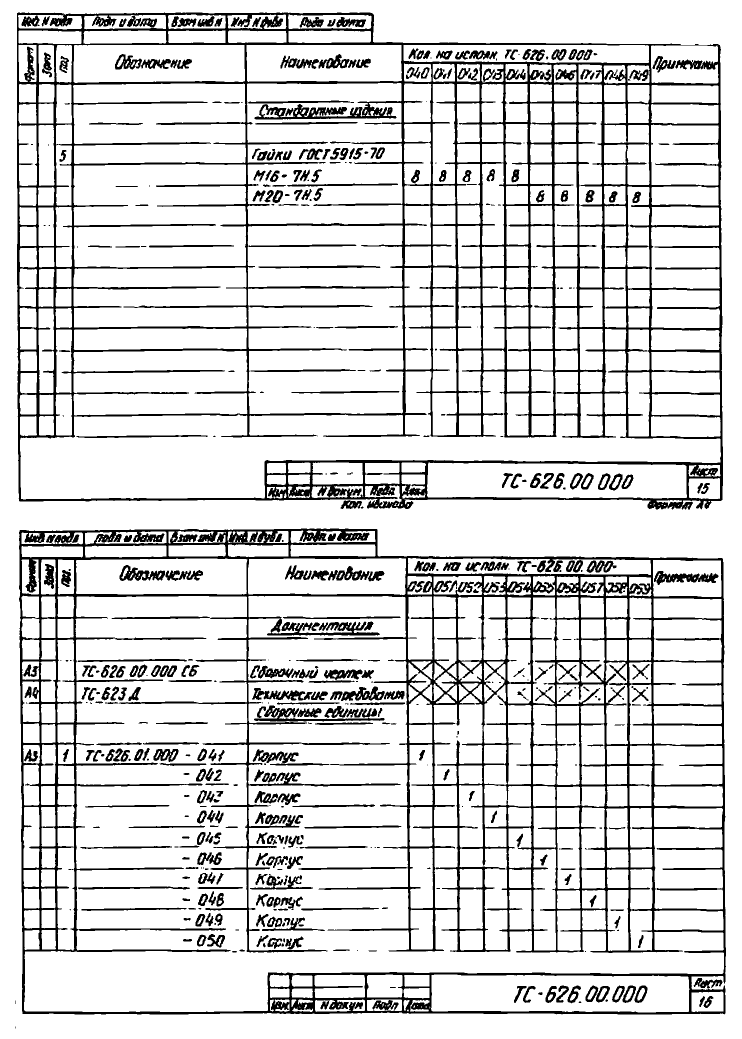 Инв. N подл Подп и дата Взам инв N Инв N дубл Подп и дата
Формат Зона Поз Обозначение Наименование Кол. на исполн. ТС-626.00 000- Примечание
040 041 042 043 044 045 046 047 048 049
Стандартные изделия
5 Гайки ГОСТ 5915-70
М16-7Н.5 8 8 8 8 8
М20-7Н.5 8 8 8 8 8
Изм Лист N докум. Подп. Дата ТС-626.00 000 Лист 15
Коп. Иванова Формат А4
Инв N подл Подп и дата Взам инв N Инв. N дубл. Подп и дата
Формат Зона Поз. Обозначение Наименование Кол. на исполн. ТС-626.00.000- Примечание
050 051 052 053 054 055 056 057 058 059
Документация
А3 ТС-626 00.000 СБ Сборочный чертеж
А4 ТС-623 Д Технические требования
Сборочные единицы
А3 1 ТС-626.01.000 - 041 Корпус 1
- 042 Корпус 1
- 043 Корпус 1
- 044 Корпус 1
- 045 Корпус 1
- 046 Корпус 1
- 047 Корпус 1
- 048 Корпус 1
- 049 Корпус 1
- 050 Корпус 1
Изм. Лист N докум Подп Дата ТС-626.00.000 Лист 16